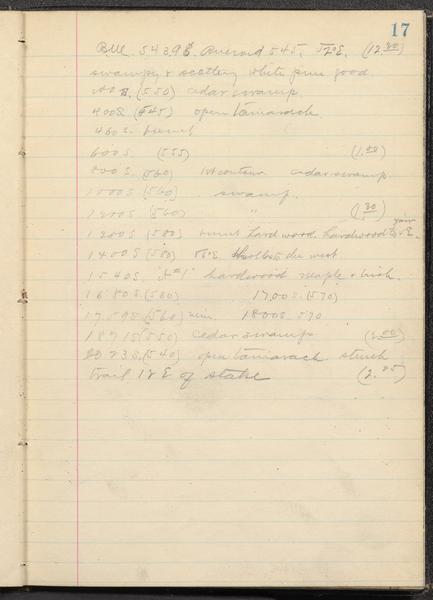 17
B.M. 543.98 Aneroid 545. (12.30)
swampy & scattering white pine good.
(550) cedar swamp.
400S. (545) open tamarack.
460 S.
600 S. (555) (1.00)
800 S. (560) 1st contour cedar swamp.
1000S (560) swamp.
1200S (560) " (1.30)
1300S (580) hard wood. hardwood
1400S (580) due west
1540S. hardwood maple & birch.
1680S (580) 1700S. (570)
1759S (560) 1800S 570
1871S (550) cedar swamp (2.00)
2023S. (540) open tamarack struck
trail 12 E of stake (2.25)